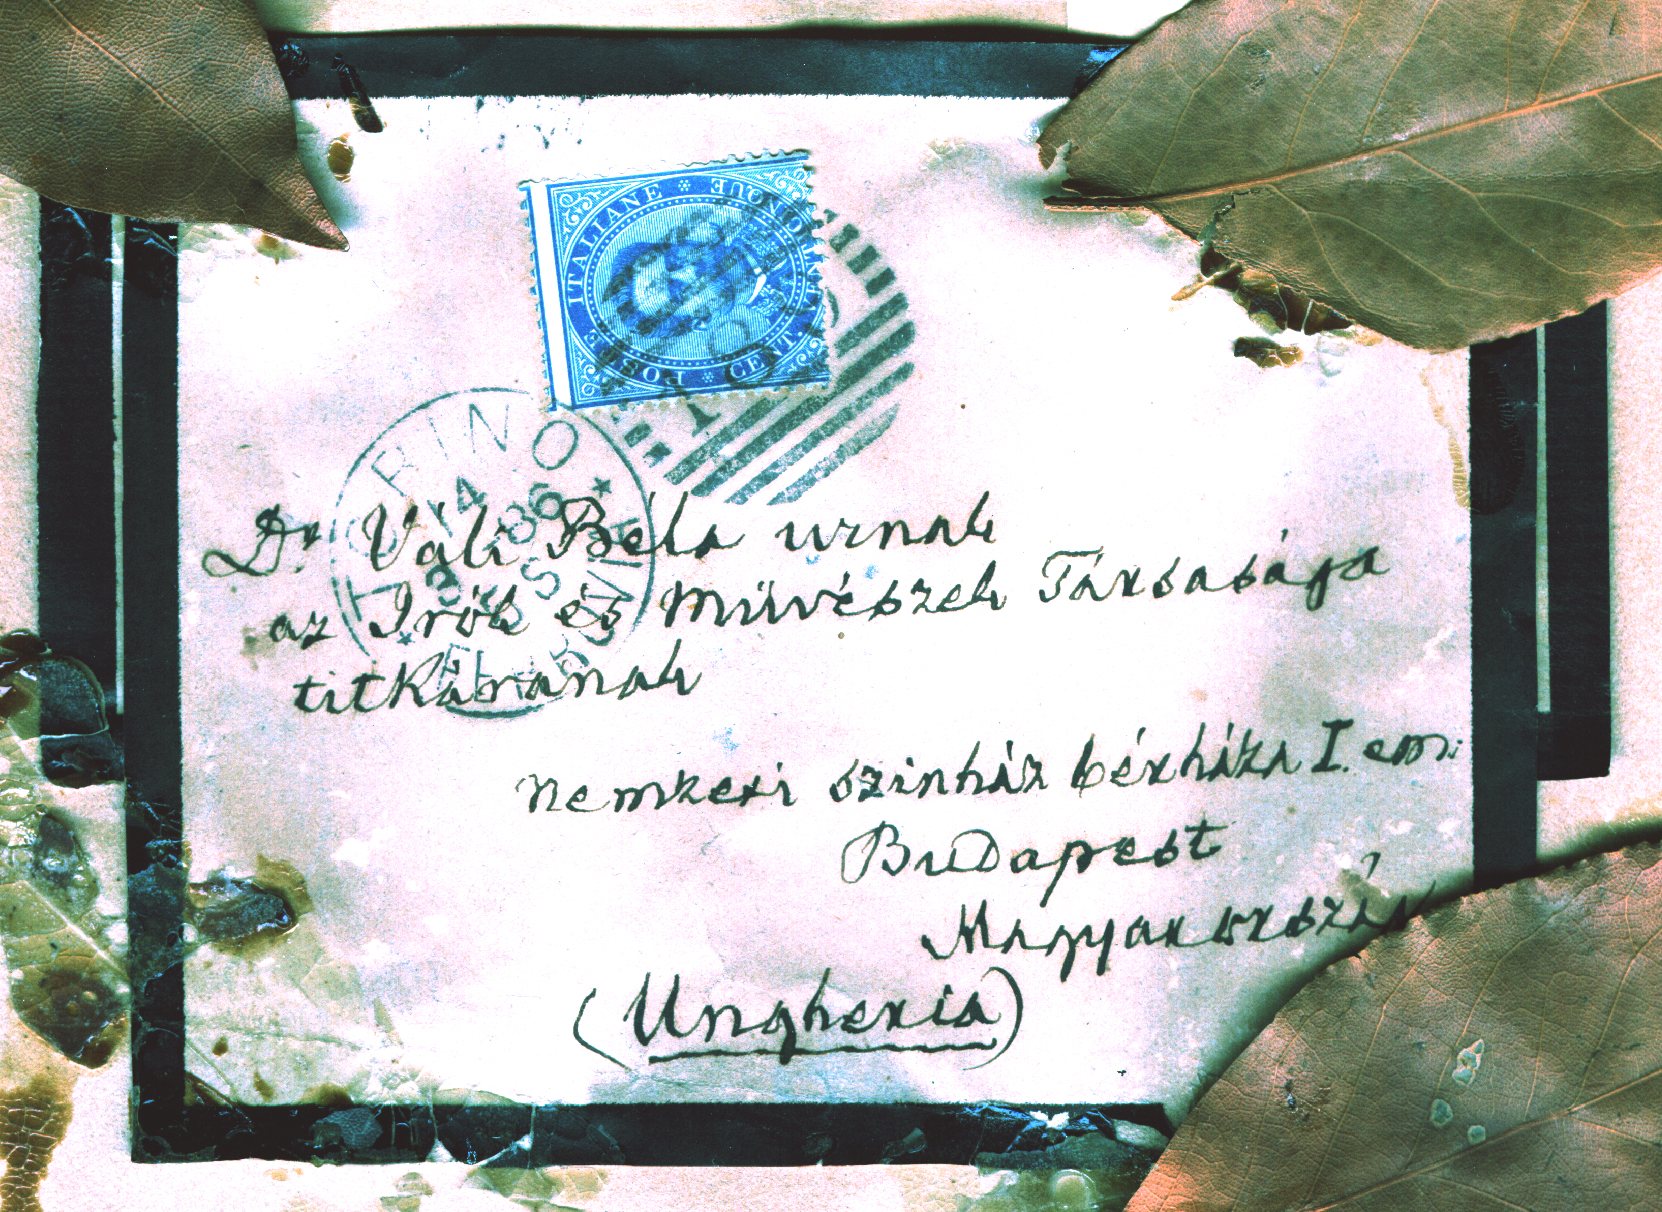 POSTE ITALIANE * CENT. VENTICINQUE
TORINO
14
86
3 S
FERROVIA
Dr. Váli Béla urnak
az Irók és Művészek Társasága
titkáranak
nemzeti szinház bérháza I. em:
Budapest
Magyarország
(Ungheria)